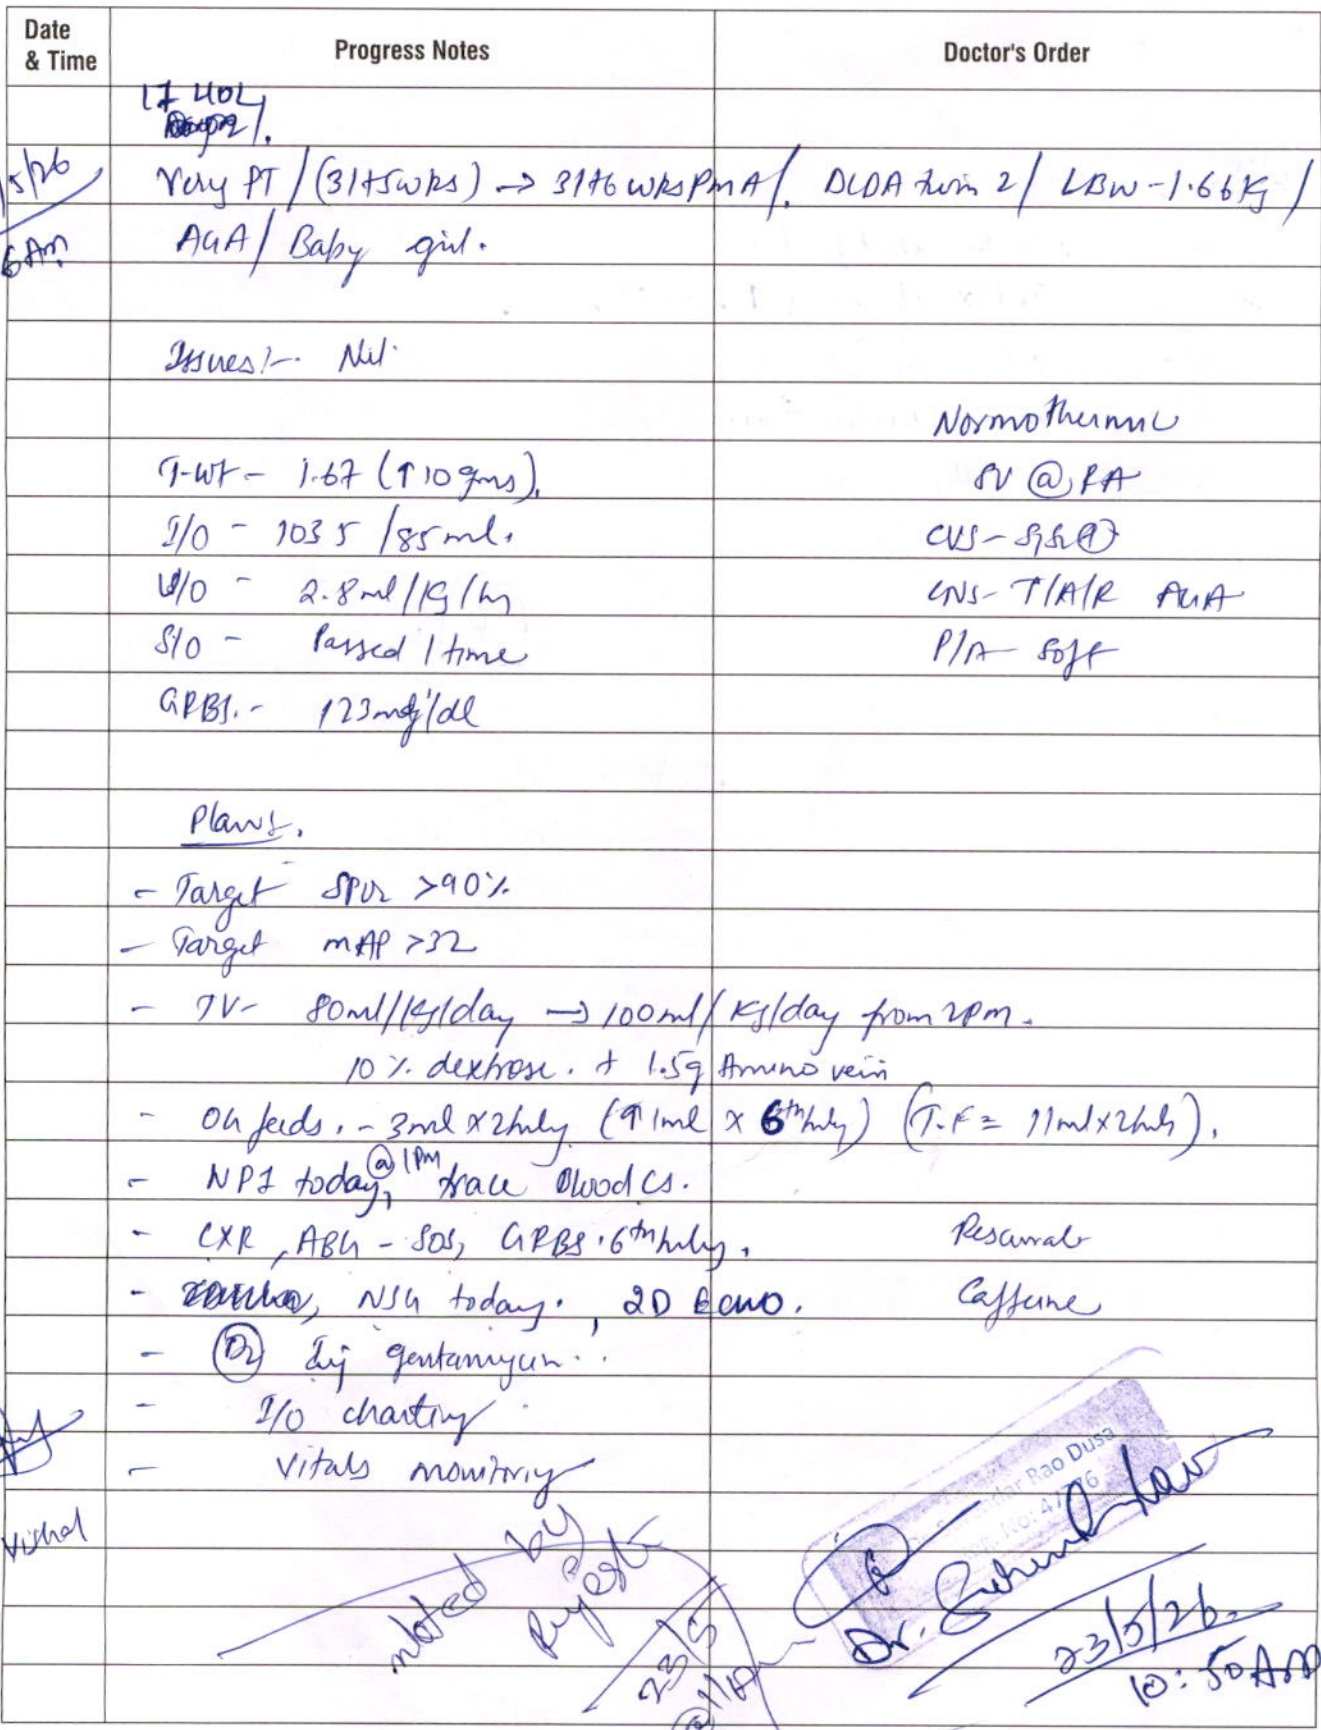 Date & Time Progress Notes Doctor's Order
17 HOL
5/26 Very PT / (31+5wks) → 31+6 wks PMA/. DCDA twin 2 / LBW - 1.66kg /
6Am AGA / Baby girl.
Issues:- Nil.
Normothermic
T-wt - 1.67 (↑10gms). SV @ RA
I/O - 103.5 /85ml. CVS - S1S2⊕
U/O - 2.8ml/kg/hr CNS - T/A/R AGA
S/O - Passed 1 time P/A - soft
GRBS.- 123mg/dl
Plans.
- Target SPO2 >90%
- Target MAP >32
- TV- 80ml/kg/day → 100ml/kg/day from 2pm.
10% dextrose. + 1.5g Amino vein
- OG feeds. - 3ml x 2hrly (↑1ml x 6thhrly) (T.F = 11mlx2hrly).
- NPI today, @ 1PM trace Blood Cs.
- CXR, ABG - SOS, GRBS. 6thhrly.
- NSG today. , 2D Echo. Caffeine
- D2 Inj gentamycin..
- I/O charting
- Vitals monitoring
Vishal
noted by
23/5
@11A
Rao Dusa
Dr. Surender Rao
23/5/26.
10:50AM